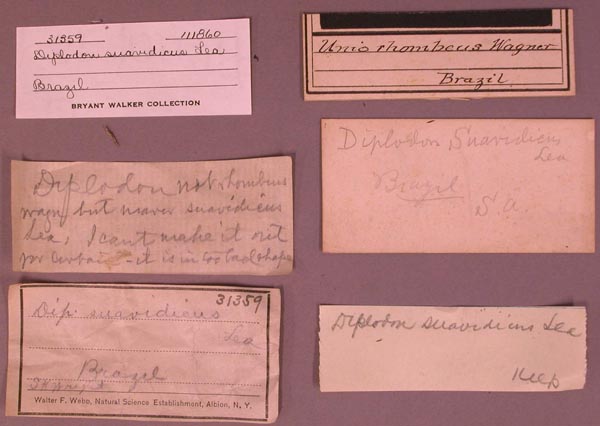 31359 111860
Diplodon suavidicus Lea
Brazil
BRYANT WALKER COLLECTION
Unio rhombeus Wagner
Brazil.
Diplodon Suavidicus
Lea
Brazil
S.A.
Diplodon not rhombeus
wagn but nearer suavidicus
Lea; I cant make it out
for certain - it is in too bad shape
31359
Dip. suavidicus
Lea
Brazil
Walter F. Webb, Natural Science Establishment, Albion, N. Y.
Diplodon suavidicus Lea
Keep